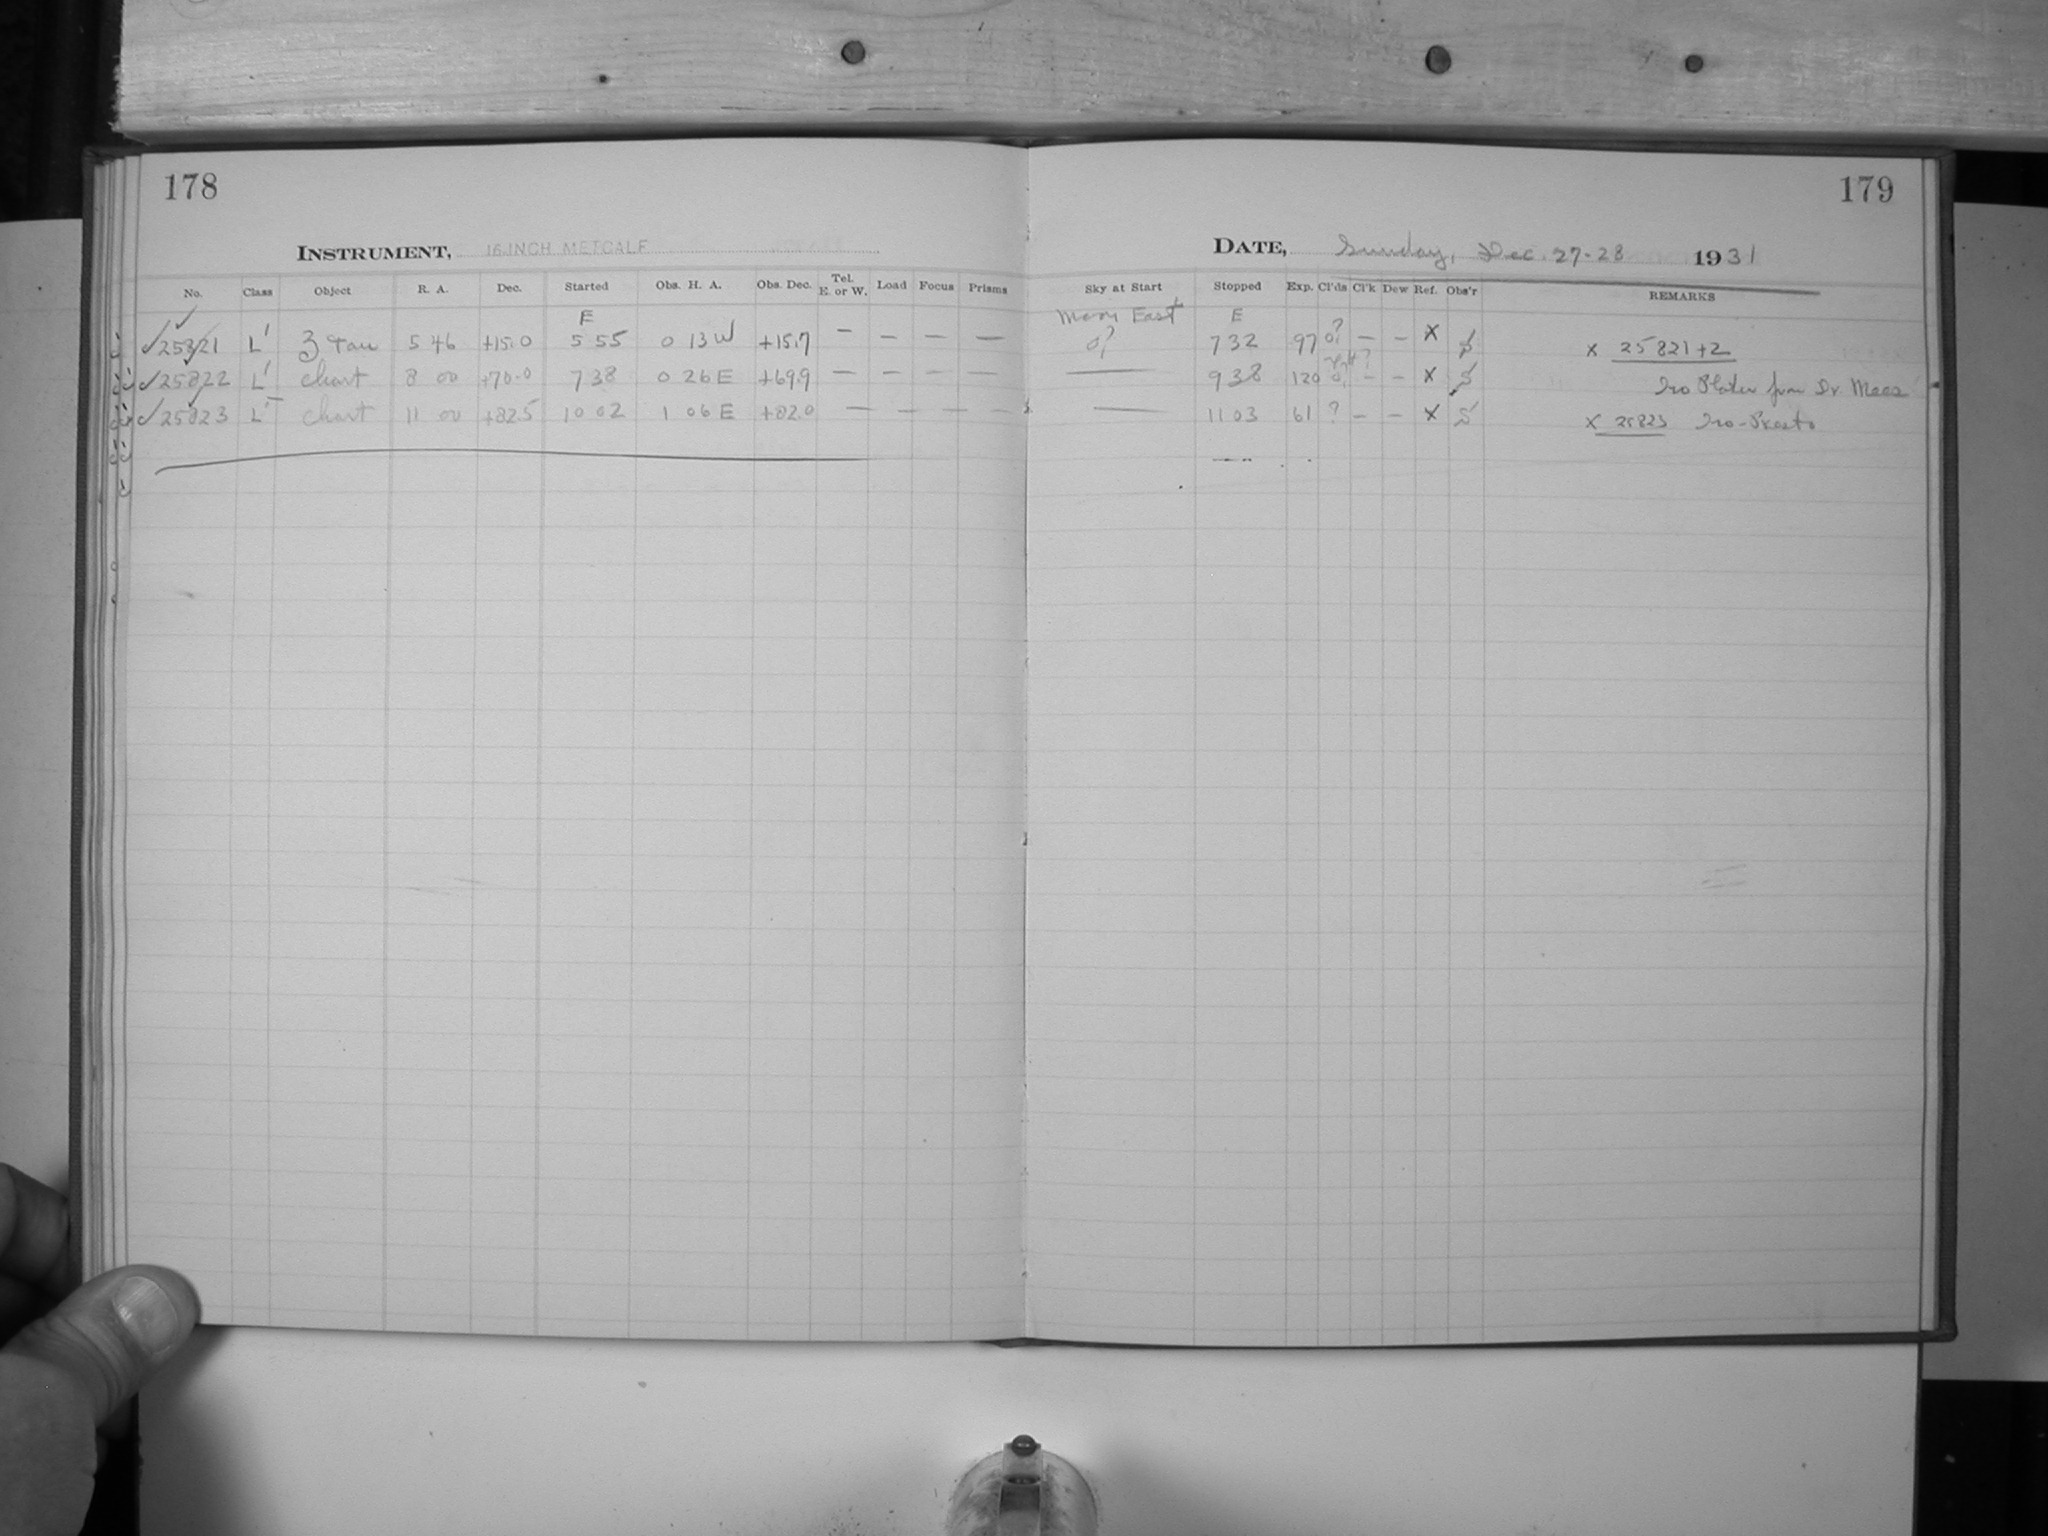 178
179
INSTRUMENT, 16 INCH METCALF
DATE, Sunday, Dec. 27-28 1931
No. Class Object R. A. Dec. Started Obs. H. A. Obs. Dec. Tel. E. or W. Load Focus Prisms Sky at Start Stopped Exp. Cl'ds Cl'k Dew Ref. Obs'r REMARKS
E Moon East E
✓25821 L' 3 Tau 5 46 +15.0 5 55 0 13 W +15.7 — — — — 0? 7 32 97 0? — — X S X 25821+2
✓25822 L' Chart 8 00 +70.0 7 38 0 26 E +69.9 — — — — — 9 38 120 — — X S Iso Plates from Dr. Mees
✓25823 L' Chart 11 00 +82.5 10 02 1 06 E +82.0 — — — — — 11 03 61 ? — — X S X 25823